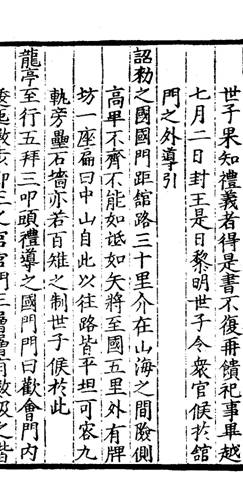 世子果知禮義者得是書不復再饋祀事畢越
七月二日封王是日黎明世子令衆官候於舘
門之外導引
詔勑之國國門距舘路三十里介在山海之間險側
高卑不齊不能如砥如矢將至國五里外有牌
坊一座扁曰中山自此以往路皆平坦可容九
軌旁壘石墻亦若百雉之制世子候於此
龍亭至行五拜三叩頭禮導之國門門曰歡會門內